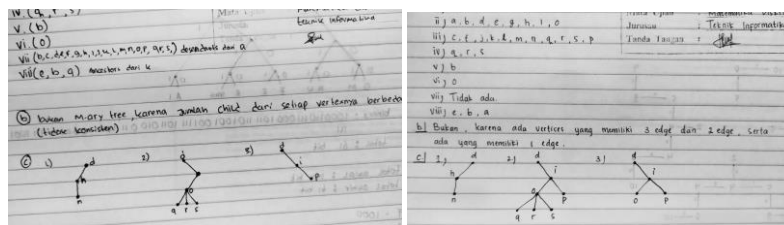 iv. (q, r, s)
v. (b)
vi. (o)
vii (b,c,d,e,f,g,h,i,j,k,l,m,n,o,p,q,r,s,) descendants dari a
viii (e, b, a) ancestors dari k
teknik informatika
(b) bukan m-ary tree, karena jumlah child dari setiap vertexnya berbeda
(tidak konsisten)
(c) 1) 2) 3)
d d d
h i
n o p
q r s
ii) a, b, d, e, g, h, i, o
iii) c, f, j, k, l, m, n, q, r, s, p
iv) q, r, s
v) b
vi) o
vii) Tidak ada.
viii) e, b, a
Jurusan : Teknik Informatika
Tanda Tangan :
b) Bukan, karena ada vertices yang memiliki 3 edge dan 2 edge, serta
ada yang memiliki 1 edge.
c) 1) 2) 3)
d d d
h i i
n o p o p
q r s